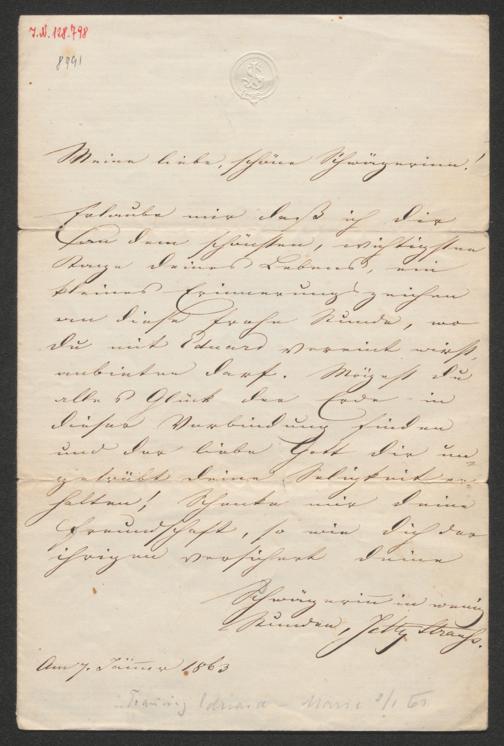 J.N. 128.798
8941
Meine liebe, schöne Schwägerinn!
Erlaube mir daß ich dir
an dem schönsten, wichtigsten
Tage deines Lebens, ein
kleines Erinnerungszeichen
an diese frohe Stunde, wo
du mit Eduard vereint wirst,
anbieten darf. Mögest du
alles Glück der Erde in
dieser Verbindung finden
und der liebe Gott dir un-
getrübt deine Seligkeit er-
halten! Schenke mir deine
Freundschaft, so wie dich der
ihrigen versichert deine
Schwägerinn in wenig
Stunden, Jetty Strauss.
Am 7. Jänner 1863
Trauung Eduard - Marie /1 63